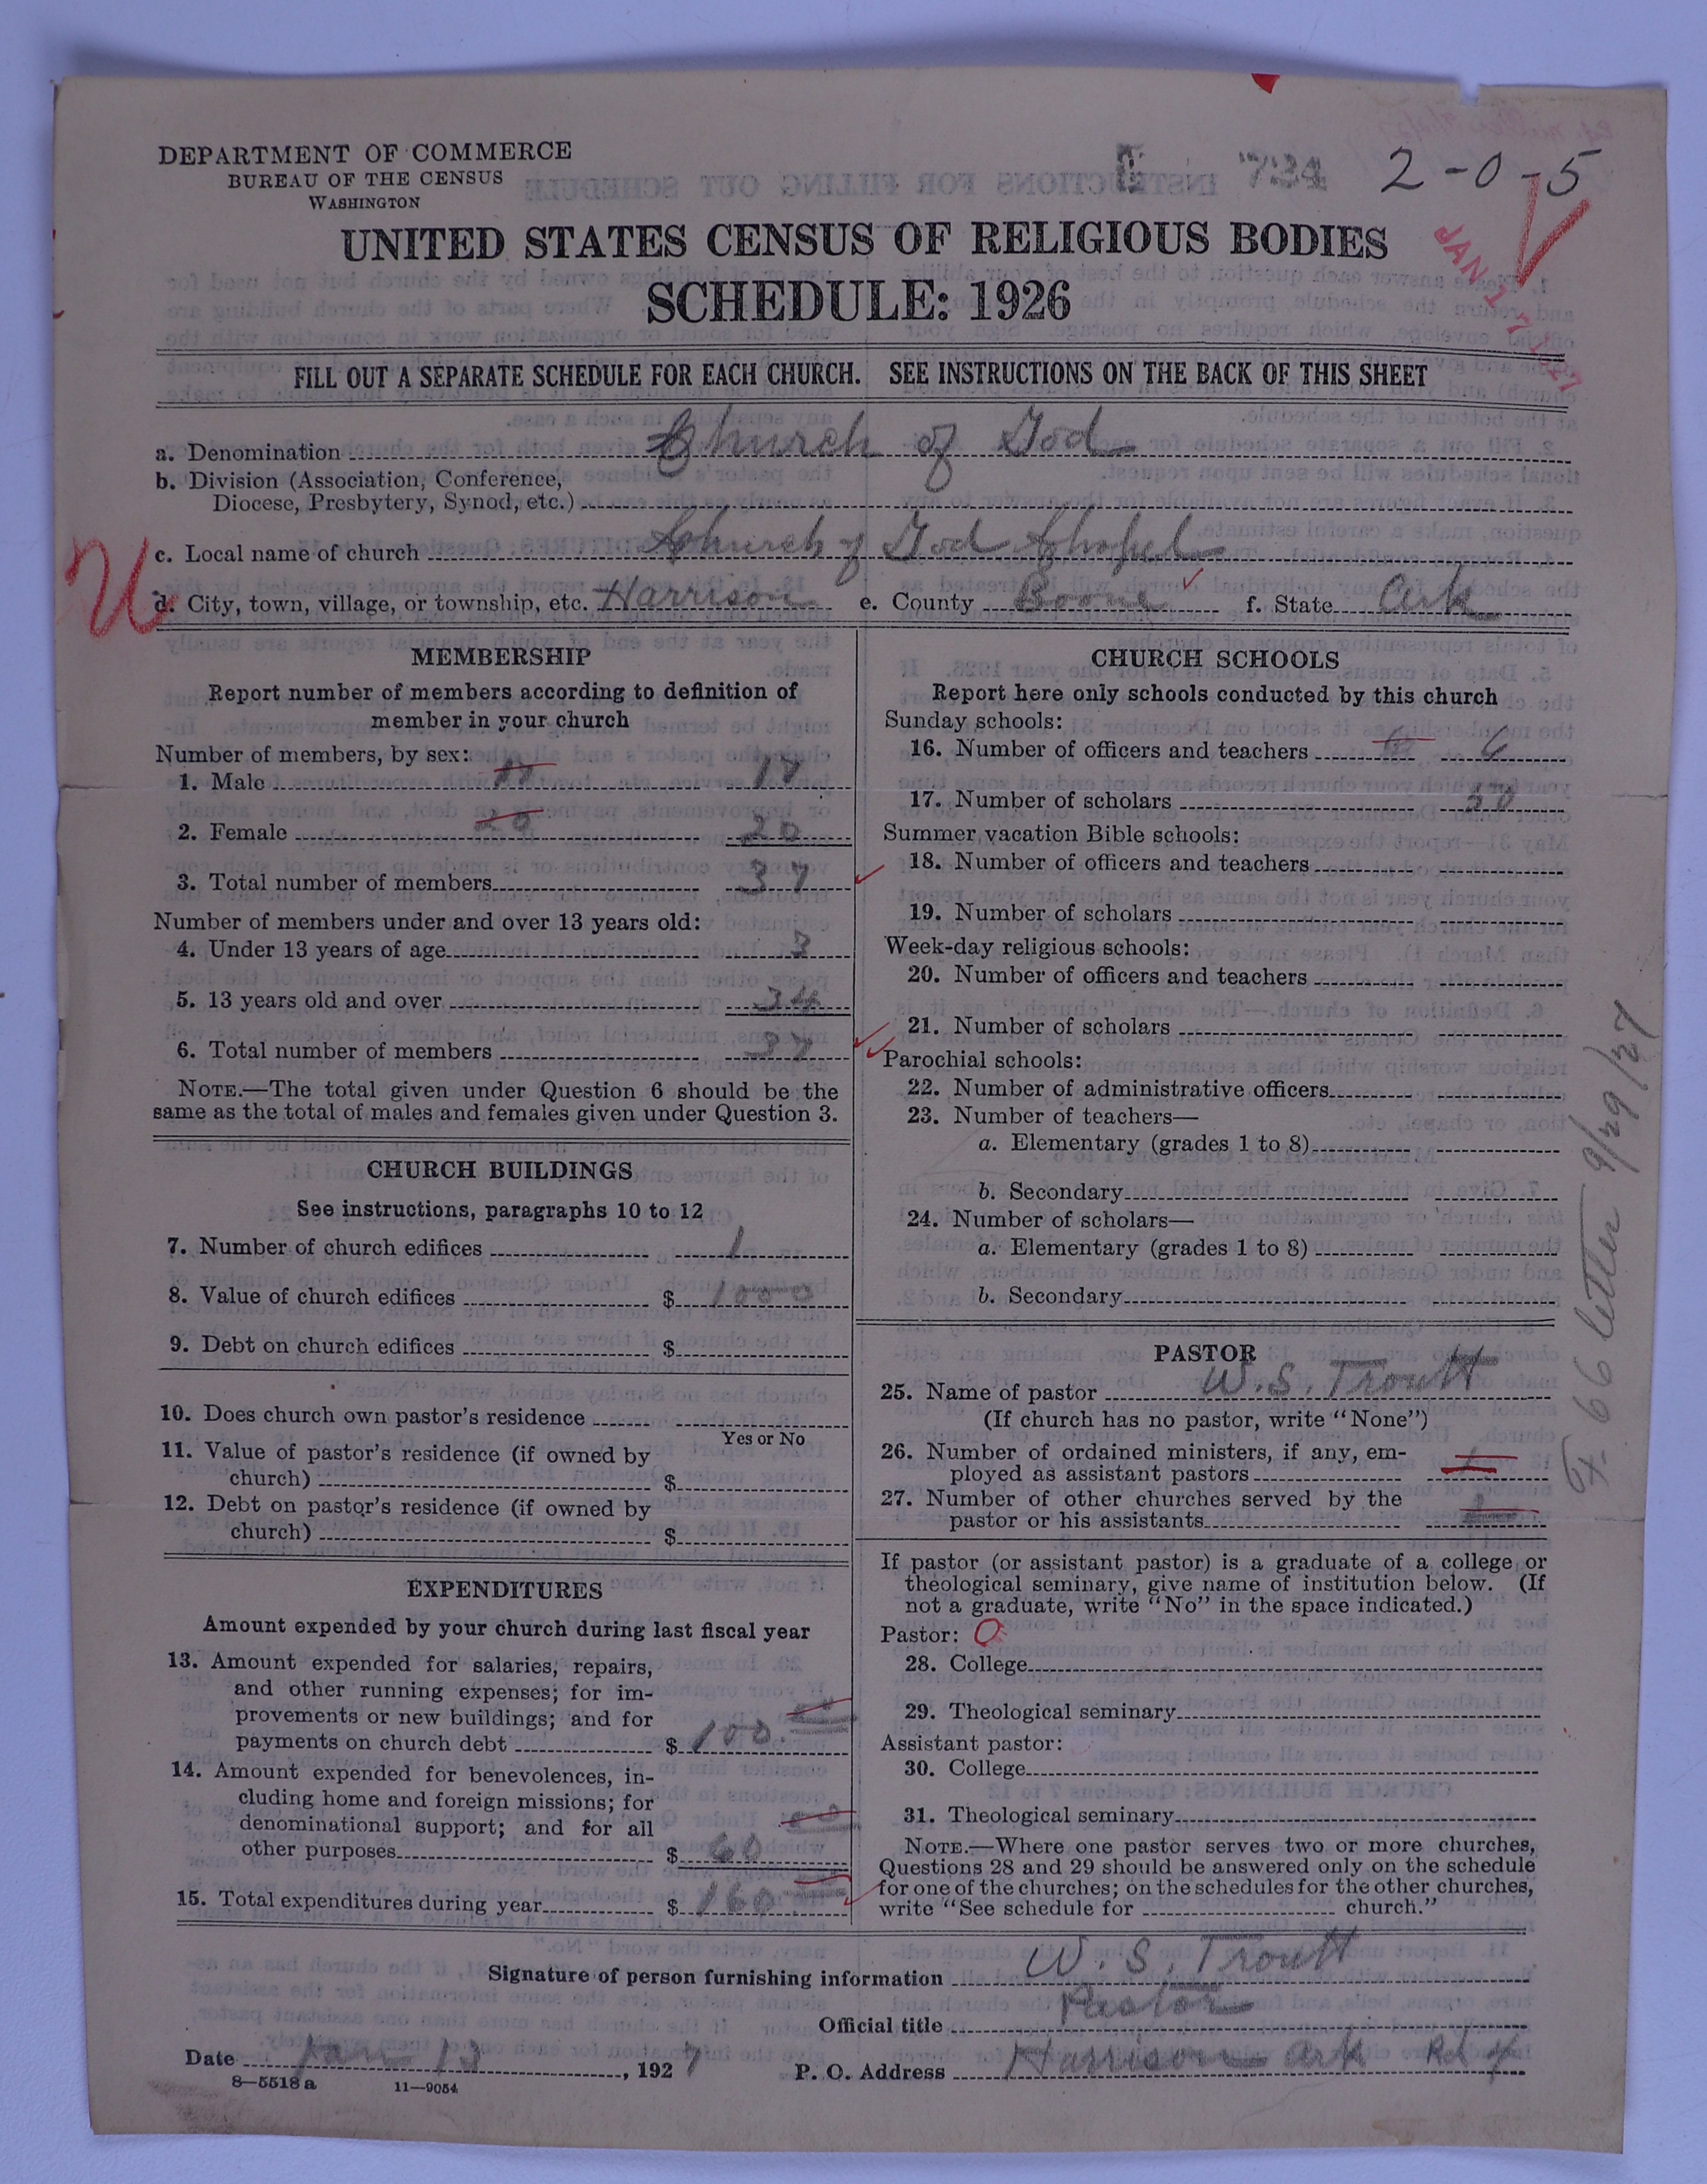 DEPARTMENT OF COMMERCE
BUREAU OF THE CENSUS
WASHINGTON
734 2-0-5
UNITED STATES CENSUS OF RELIGIOUS BODIES
SCHEDULE: 1926
JAN 17 1927
FILL OUT A SEPARATE SCHEDULE FOR EACH CHURCH. SEE INSTRUCTIONS ON THE BACK OF THIS SHEET
a. Denomination Church of God
b. Division (Association, Conference,
Diocese, Presbytery, Synod, etc.)
c. Local name of church Church of God Chapel
U
d. City, town, village, or township, etc. Harrison e. County Boone f. State Ark
MEMBERSHIP
Report number of members according to definition of
member in your church
Number of members, by sex:
1. Male 17 17
2. Female 20 20
3. Total number of members 37
Number of members under and over 13 years old:
4. Under 13 years of age 3
5. 13 years old and over 34
6. Total number of members 37
NOTE.—The total given under Question 6 should be the
same as the total of males and females given under Question 3.
CHURCH BUILDINGS
See instructions, paragraphs 10 to 12
7. Number of church edifices 1
8. Value of church edifices $ 1000
9. Debt on church edifices $
10. Does church own pastor's residence
Yes or No
11. Value of pastor's residence (if owned by
church) $
12. Debt on pastor's residence (if owned by
church) $
EXPENDITURES
Amount expended by your church during last fiscal year
13. Amount expended for salaries, repairs,
and other running expenses; for im-
provements or new buildings; and for
payments on church debt $ 100.
14. Amount expended for benevolences, in-
cluding home and foreign missions; for
denominational support; and for all
other purposes $ 60
15. Total expenditures during year $ 160
CHURCH SCHOOLS
Report here only schools conducted by this church
Sunday schools:
16. Number of officers and teachers 6
17. Number of scholars 50
Summer vacation Bible schools:
18. Number of officers and teachers
19. Number of scholars
Week-day religious schools:
20. Number of officers and teachers
21. Number of scholars
Parochial schools:
22. Number of administrative officers
23. Number of teachers—
a. Elementary (grades 1 to 8)
b. Secondary
24. Number of scholars—
a. Elementary (grades 1 to 8)
b. Secondary
PASTOR
25. Name of pastor W. S. Troutt
(If church has no pastor, write "None")
26. Number of ordained ministers, if any, em-
ployed as assistant pastors
27. Number of other churches served by the
pastor or his assistants
If pastor (or assistant pastor) is a graduate of a college or
theological seminary, give name of institution below. (If
not a graduate, write "No" in the space indicated.)
Pastor: O
28. College
29. Theological seminary
Assistant pastor:
30. College
31. Theological seminary
NOTE.—Where one pastor serves two or more churches,
Questions 28 and 29 should be answered only on the schedule
for one of the churches; on the schedules for the other churches,
write "See schedule for church."
66 letter 9/29/27
Signature of person furnishing information W. S. Troutt
Official title Pastor
Date Jan 13, 1927 P. O. Address Harrison Ark Rd 4
8—5518 a 11—9054